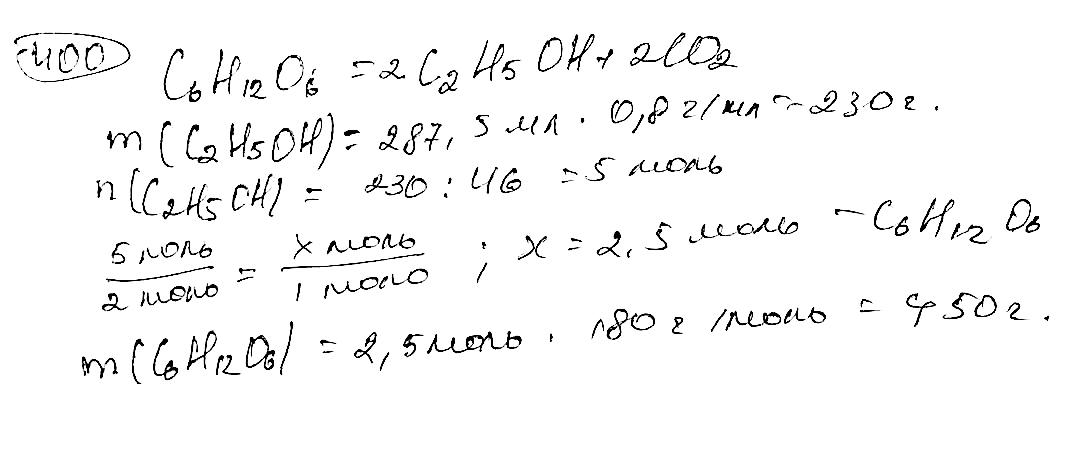 400
C6H12O6 = 2C2H5OH + 2CO2
m(C2H5OH) = 287,5 мл · 0,8 г/мл = 230 г.
n(C2H5OH) = 230 : 46 = 5 моль
5 моль / 2 моль = x моль / 1 моль ; x = 2,5 моль – C6H12O6
m(C6H12O6) = 2,5 моль · 180 г/моль = 450 г.